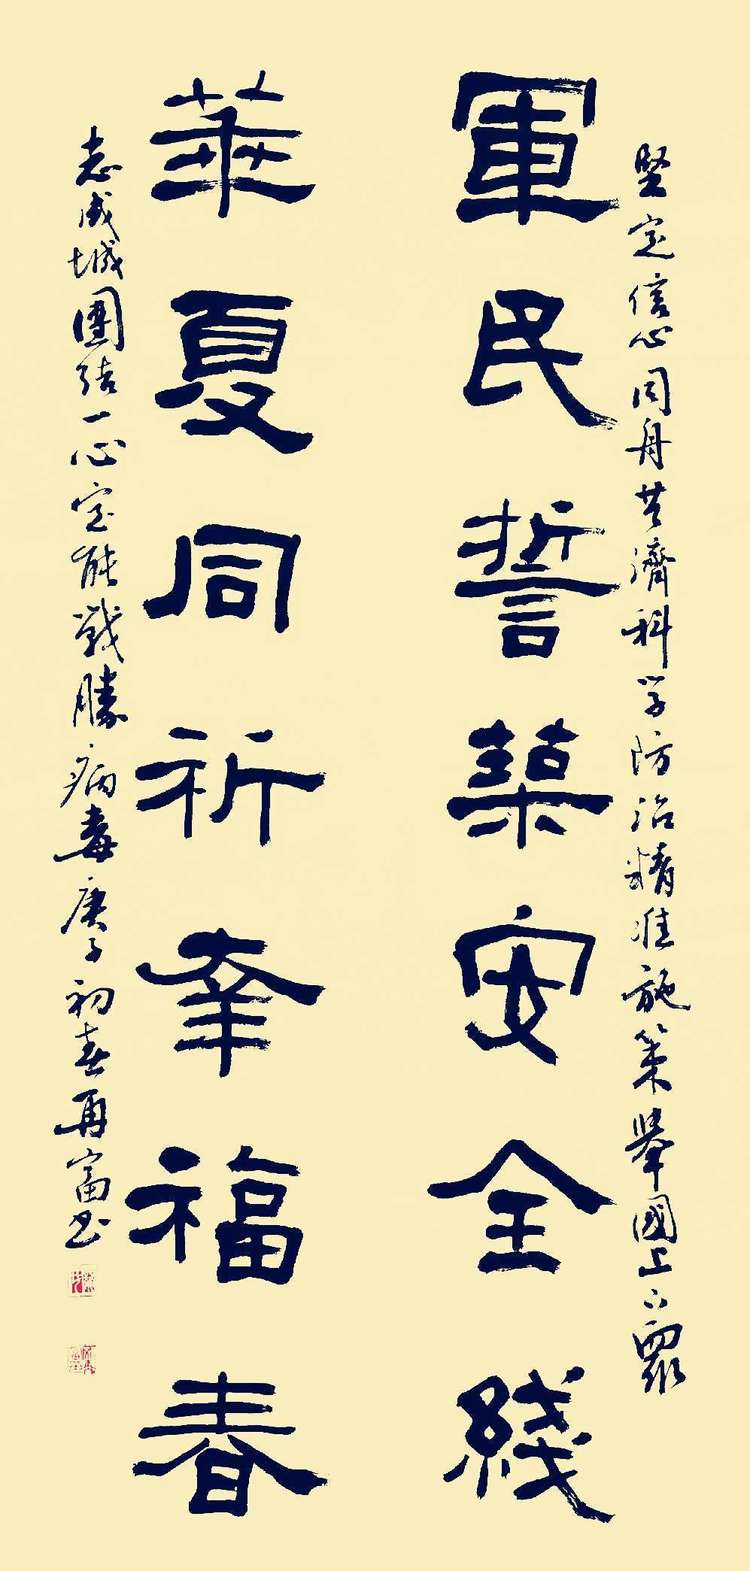 堅定信心同舟共濟科学防治精准施策舉國上下眾
軍民誓築安全綫
華夏同祈幸福春
志成城團结一心定能戰勝病毒庚子初春再富书